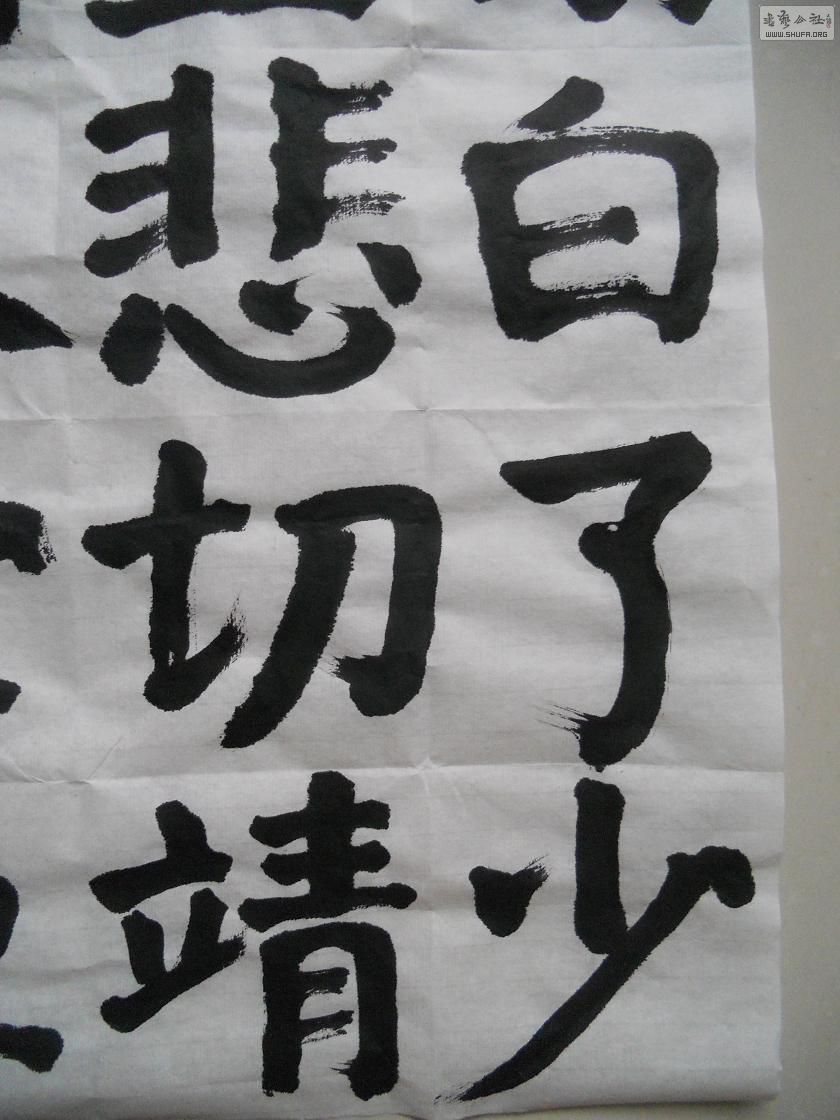 白了少
悲切靖
书艺公社
WWW.SHUFA.ORG